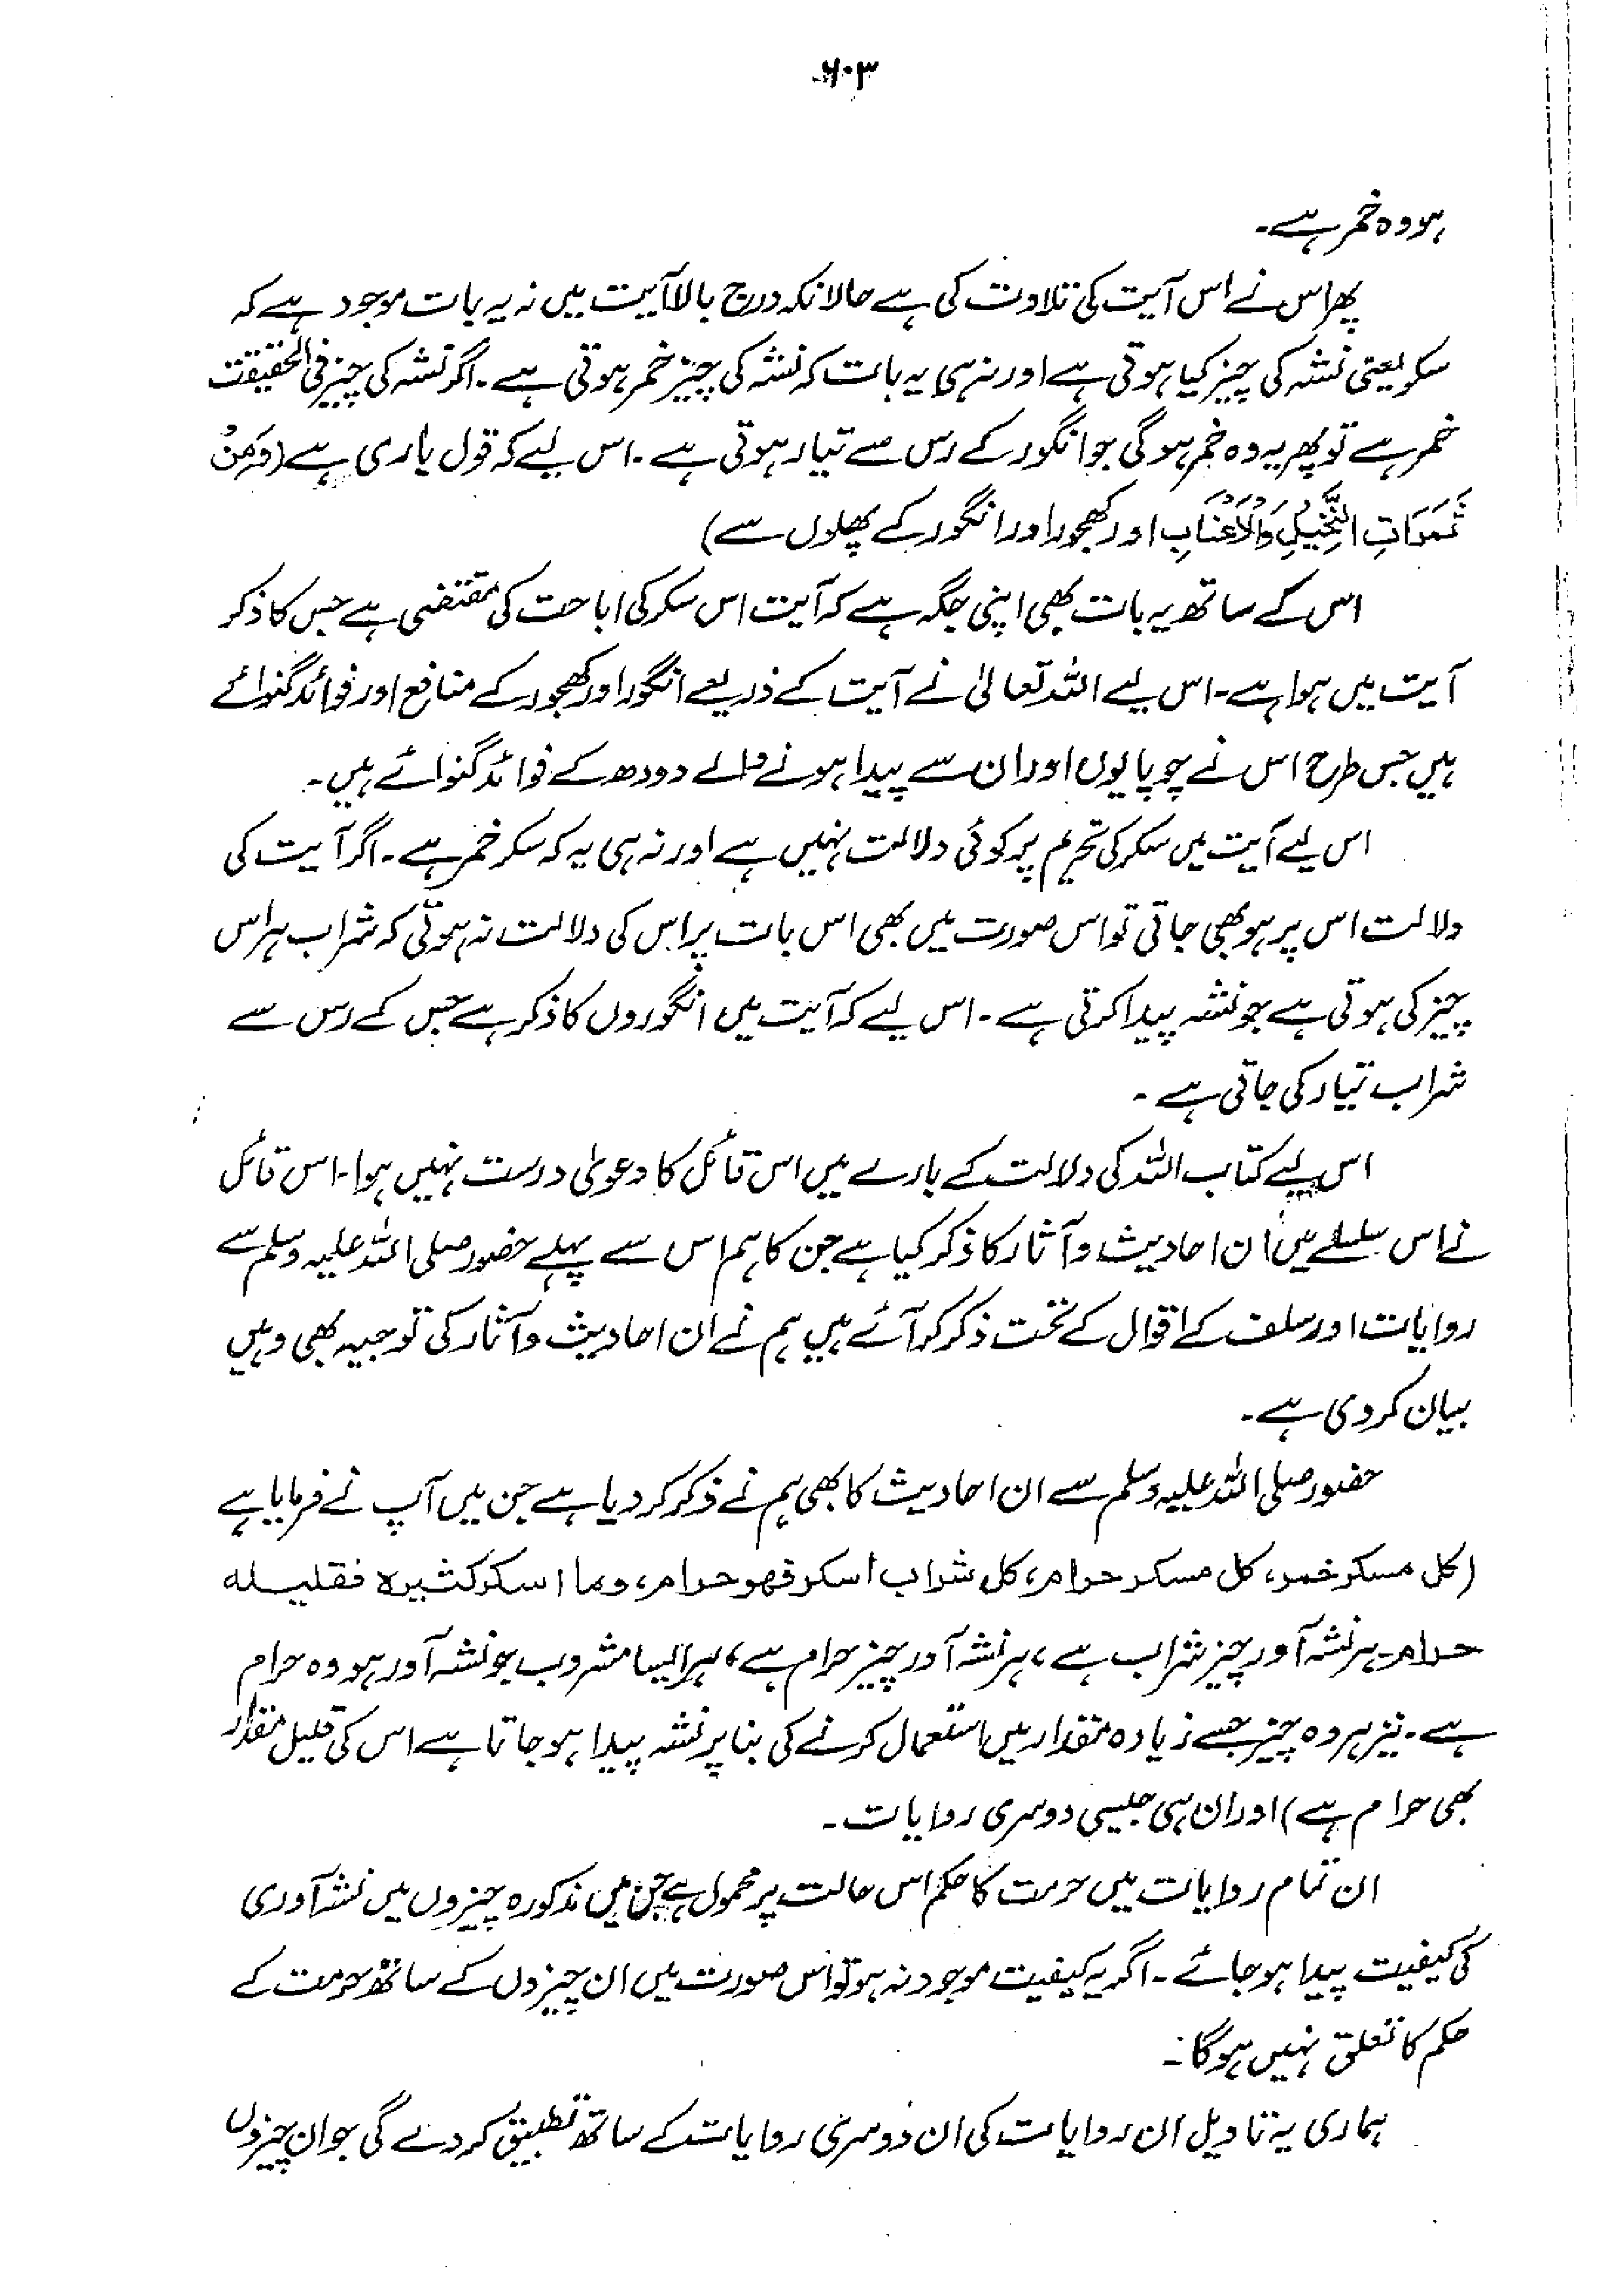 ۶۰۳
ہو وہ خمر ہے۔
پھر اس نے اس آیت کی تلاوت کی ہے حالانکہ درج بالا آیت میں نہ یہ بات موجود ہے کہ
سکر یعنی نشہ کی چیز کیا ہوتی ہے اور نہ ہی یہ بات کہ نشہ کی چیز خمر ہوتی ہے۔ اگر نشہ کی چیز فی الحقیقت
خمر ہے تو پھر یہ وہ خمر ہوگی جو انگور کے رس سے تیار ہوتی ہے۔ اس لیے کہ قول باری ہے (وَمِنْ
ثَمَرَاتِ النَّخِيْلِ وَالْاَعْنَابِ اور کھجور اور انگور کے پھلوں سے)
اس کے ساتھ یہ بات بھی اپنی جگہ ہے کہ آیت اس سکر کی اباحت کی مقتضی ہے جس کا ذکر
آیت میں ہوا ہے۔ اس لیے اللہ تعالیٰ نے آیت کے ذریعے انگور اور کھجور کے منافع اور فوائد گنوائے
ہیں جس طرح اس نے چوپایوں اور ان سے پیدا ہونے والے دودھ کے فوائد گنوائے ہیں۔
اس لیے آیت میں سکر کی تحریم پر کوئی دلالت نہیں ہے اور نہ ہی یہ کہ سکر خمر ہے۔ اگر آیت کی
دلالت اس پر ہو بھی جاتی تو اس صورت میں بھی اس بات پر اس کی دلالت نہ ہوتی کہ شراب ہر اس
چیز کی ہوتی ہے جو نشہ پیدا کرتی ہے۔ اس لیے کہ آیت میں انگوروں کا ذکر ہے جس کے رس سے
شراب تیار کی جاتی ہے۔
اس لیے کتاب اللہ کی دلالت کے بارے میں اس قائل کا دعویٰ درست نہیں ہوا۔ اس قائل
نے اس سلسلے میں ان احادیث و آثار کا ذکر کیا ہے جن کا ہم اس سے پہلے حضور صلی اللہ علیہ وسلم سے
روایات اور سلف کے اقوال کے تحت ذکر کر آئے ہیں ہم نے ان احادیث و آثار کی توجیہ بھی وہیں
بیان کر دی ہے۔
حضور صلی اللہ علیہ وسلم سے ان احادیث کا بھی ہم نے ذکر کر دیا ہے جن میں آپ نے فرمایا ہے
(کل مسکر خمر، کل مسکر حرام، کل شراب اسکر فھو حرام، وما اسکر کثیرہ فقلیلہ
حرام۔ ہر نشہ آور چیز شراب ہے، ہر نشہ آور چیز حرام ہے، ہر ایسا مشروب جو نشہ آور ہو وہ حرام
ہے۔ نیز ہر وہ چیز جسے زیادہ مقدار میں استعمال کرنے کی بنا پر نشہ پیدا ہو جاتا ہے اس کی قلیل مقدار
بھی حرام ہے) اور ان ہی جیسی دوسری روایات۔
ان تمام روایات میں حرمت کا حکم اس حالت پر محمول ہے جن میں مذکورہ چیزوں میں نشہ آوری
کی کیفیت پیدا ہو جائے۔ اگر یہ کیفیت موجود نہ ہو تو اس صورت میں ان چیزوں کے ساتھ حرمت کے
حکم کا تعلق نہیں ہوگا۔
ہماری یہ تاویل ان روایات کی ان دوسری روایات کے ساتھ تطبیق کر دے گی جو ان چیزوں